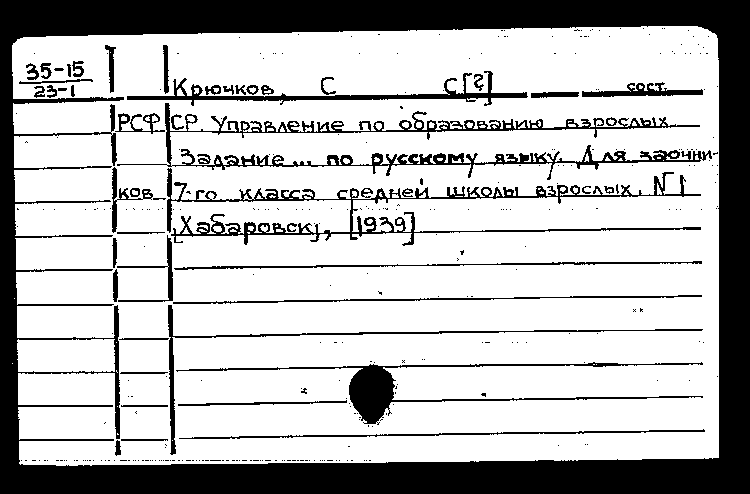 35-15
23-1
Крючков, С С[?] сост.
РСФСР. Управление по образованию взрослых
Задание... по русскому языку. Для заочни-
ков 7-го класса средней школы взрослых. №1
[Хабаровск], [1939]